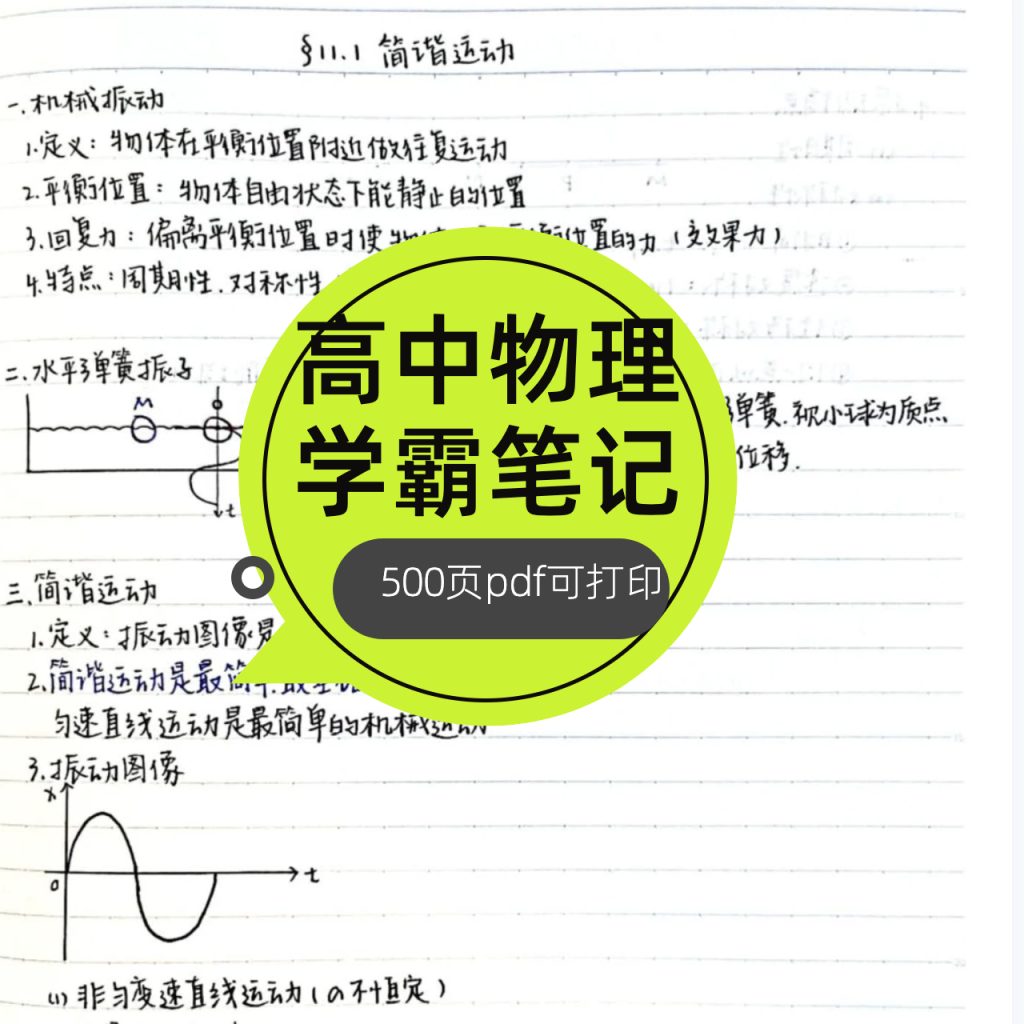 §11.1 简谐运动
一.机械振动
1.定义：物体在平衡位置附近做往复运动
2.平衡位置：物体自由状态下能静止的位置
3.回复力：偏离平衡位置时使物 位置的力（效果力）
4.特点：周期性.对称性
高中物理
学霸笔记
500页pdf可打印
二.水平弹簧振子
M
O
弹簧.视小球为质点
位移.
t
三.简谐运动
1.定义：振动图像是
2.简谐运动是最简单.最
匀速直线运动是最简单的机械运动
3.振动图像
x
0
t
(1) 非匀变速直线运动（a不恒定）